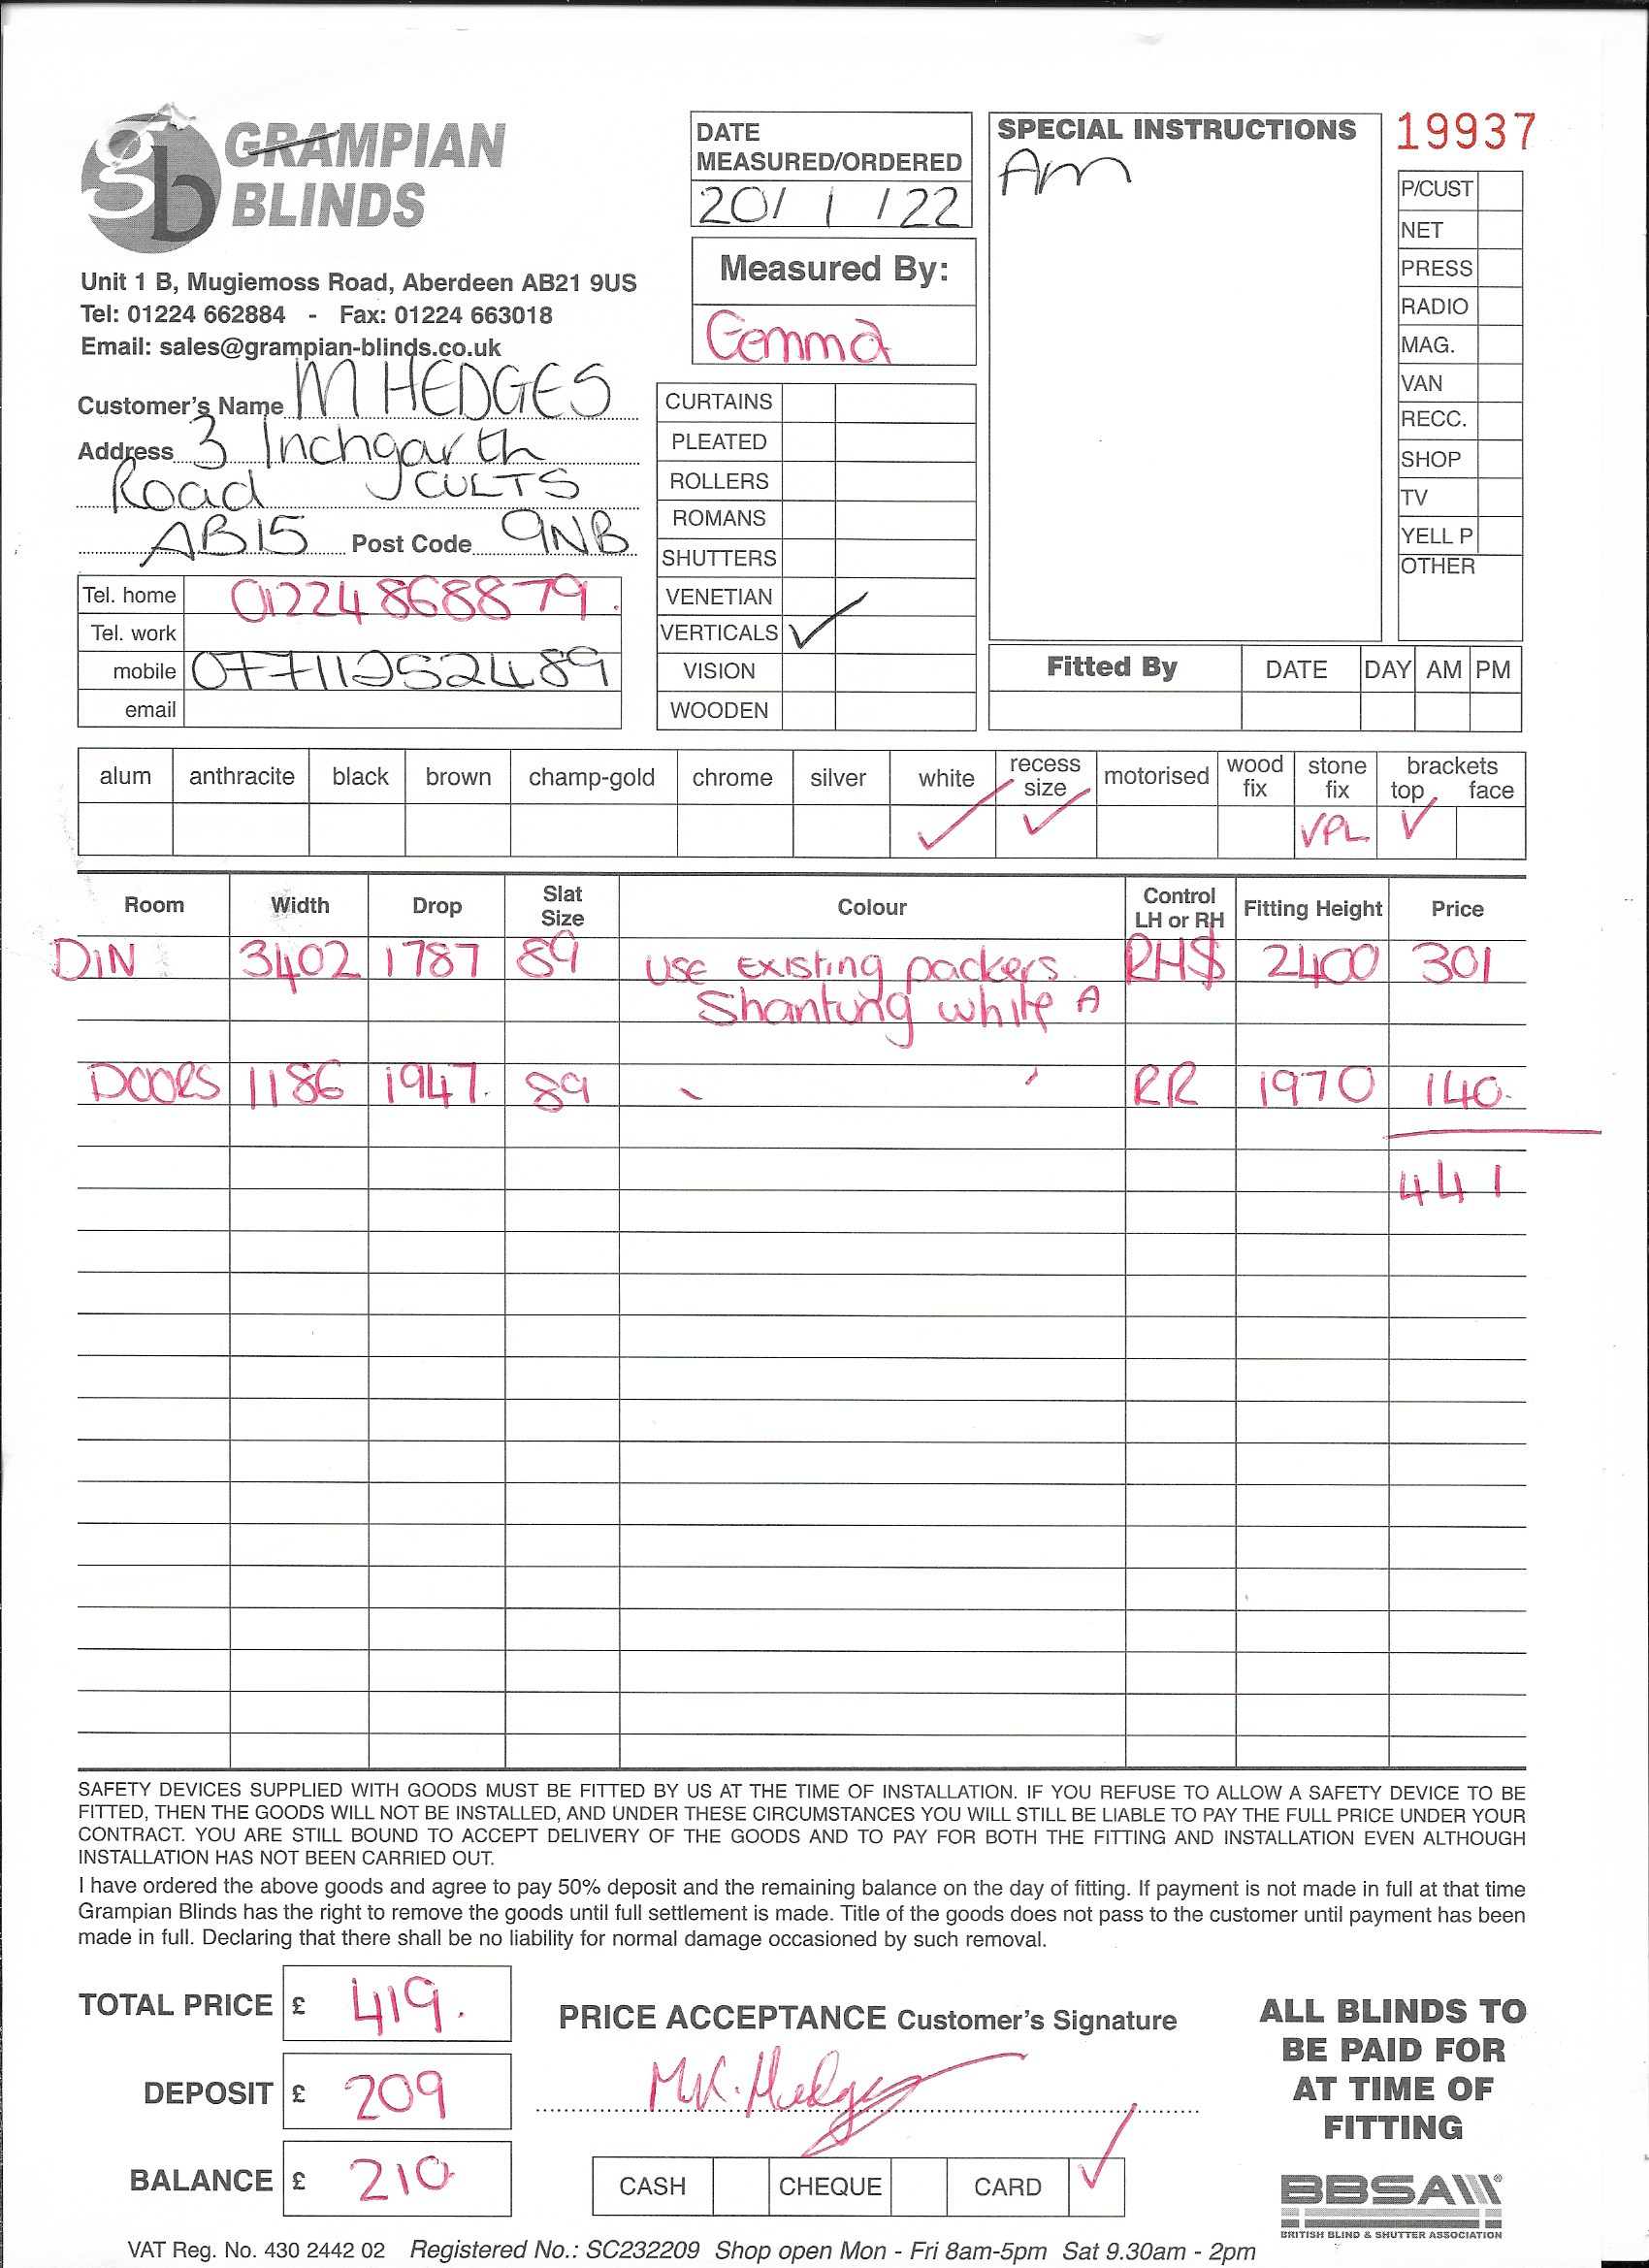 GRAMPIAN
BLINDS
Unit 1 B, Mugiemoss Road, Aberdeen AB21 9US
Tel: 01224 662884 - Fax: 01224 663018
Email: sales@grampian-blinds.co.uk
Customer's Name M HEDGES
Address 3 Inchgarth
Road CULTS
AB15 Post Code 9NB
Tel. home 01224 868879.
Tel. work
mobile 07711252489
email
DATE
MEASURED/ORDERED
20/ 1 /22
Measured By:
Gemma
CURTAINS
PLEATED
ROLLERS
ROMANS
SHUTTERS
VENETIAN
VERTICALS ✓
VISION
WOODEN
SPECIAL INSTRUCTIONS
Am
19937
P/CUST
NET
PRESS
RADIO
MAG.
VAN
RECC.
SHOP
TV
YELL P
OTHER
Fitted By DATE DAY AM PM
alum anthracite black brown champ-gold chrome silver white recess size motorised wood fix stone fix brackets top face
✓ ✓ VPL ✓
Room Width Drop Slat Size Colour Control LH or RH Fitting Height Price
DIN 3402 1787 89 use existing packers. RHS 2400 301
Shantung white A
DOORS 1186 1947. 89 RR 1970 140.
441
SAFETY DEVICES SUPPLIED WITH GOODS MUST BE FITTED BY US AT THE TIME OF INSTALLATION. IF YOU REFUSE TO ALLOW A SAFETY DEVICE TO BE
FITTED, THEN THE GOODS WILL NOT BE INSTALLED, AND UNDER THESE CIRCUMSTANCES YOU WILL STILL BE LIABLE TO PAY THE FULL PRICE UNDER YOUR
CONTRACT. YOU ARE STILL BOUND TO ACCEPT DELIVERY OF THE GOODS AND TO PAY FOR BOTH THE FITTING AND INSTALLATION EVEN ALTHOUGH
INSTALLATION HAS NOT BEEN CARRIED OUT.
I have ordered the above goods and agree to pay 50% deposit and the remaining balance on the day of fitting. If payment is not made in full at that time
Grampian Blinds has the right to remove the goods until full settlement is made. Title of the goods does not pass to the customer until payment has been
made in full. Declaring that there shall be no liability for normal damage occasioned by such removal.
TOTAL PRICE £ 419.
DEPOSIT £ 209
BALANCE £ 210
PRICE ACCEPTANCE Customer's Signature
M.K. Hedges
CASH CHEQUE CARD ✓
ALL BLINDS TO
BE PAID FOR
AT TIME OF
FITTING
BBSA
BRITISH BLIND & SHUTTER ASSOCIATION
VAT Reg. No. 430 2442 02 Registered No.: SC232209 Shop open Mon - Fri 8am-5pm Sat 9.30am - 2pm